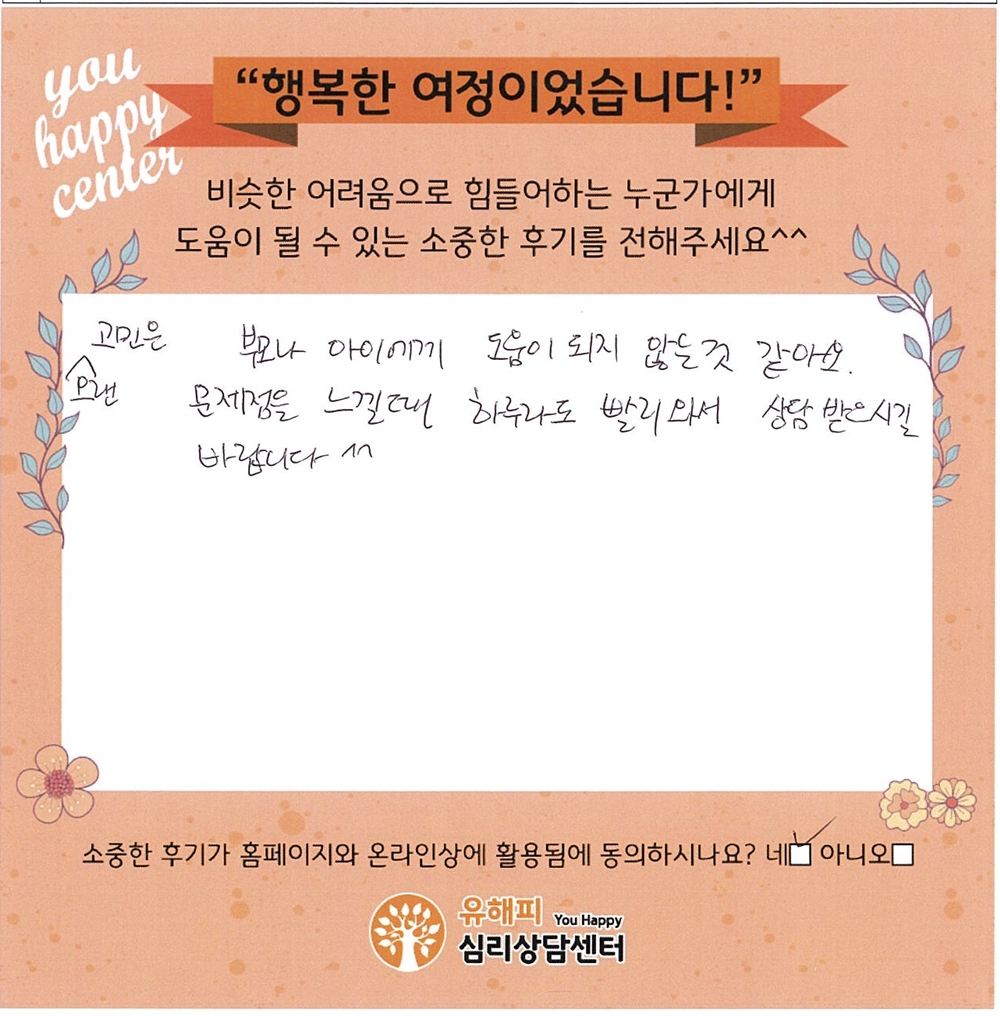 you
happy
center
“행복한 여정이었습니다!”
비슷한 어려움으로 힘들어하는 누군가에게
도움이 될 수 있는 소중한 후기를 전해주세요^^
오랜 고민은 부모나 아이에게 도움이 되지 않는것 같아요.
문제점을 느낄때 하루라도 빨리 와서 상담 받으시길
바랍니다 ^^
소중한 후기가 홈페이지와 온라인상에 활용됨에 동의하시나요? 네☑ 아니오☐
유해피 You Happy
심리상담센터